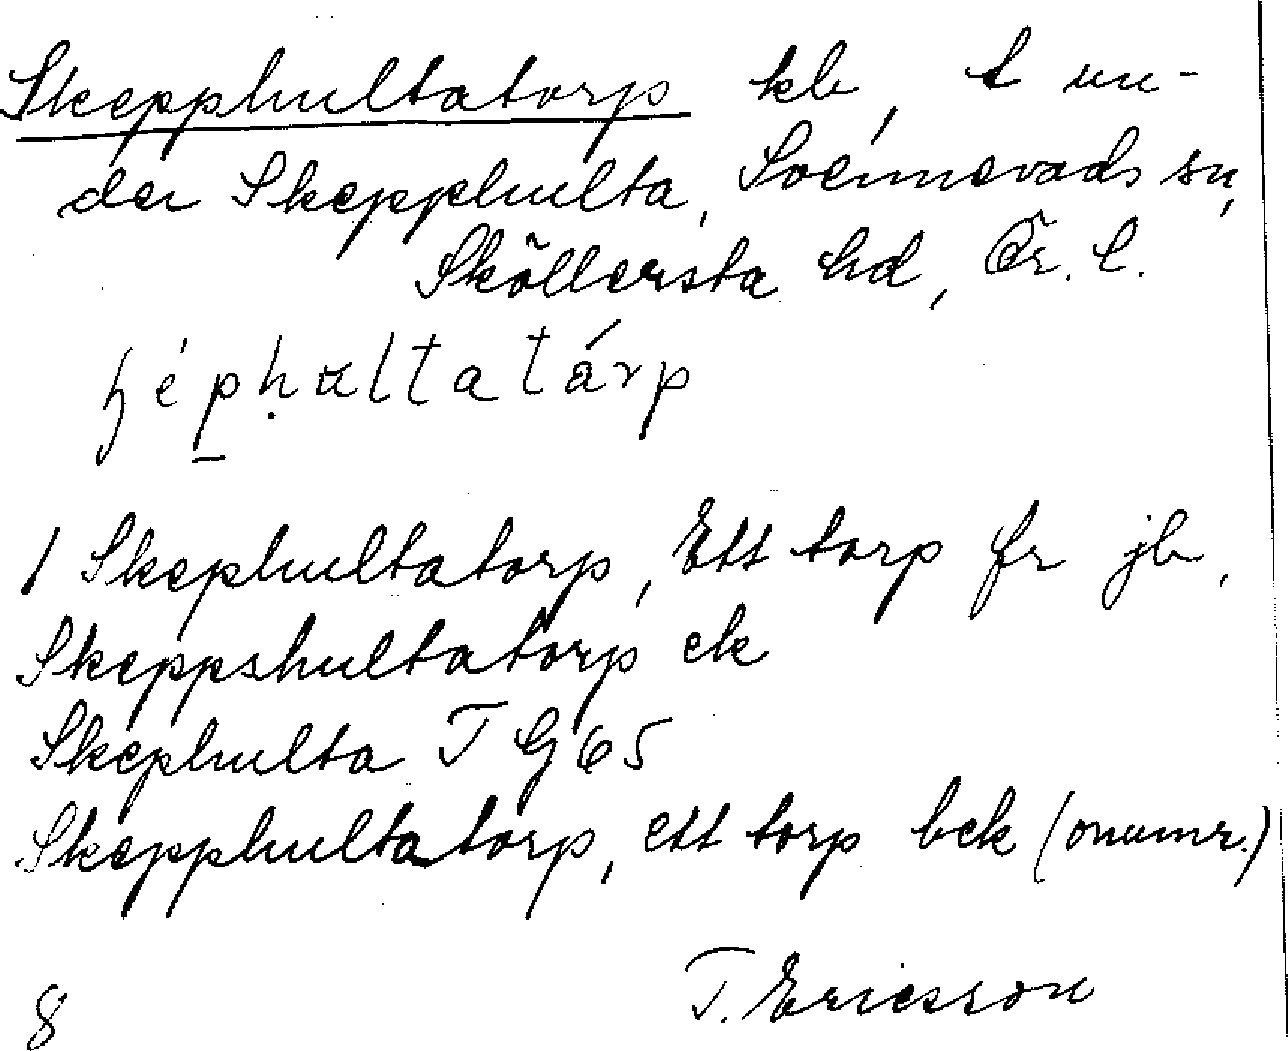 Skepphultatorp kb, t un-
der Skepphulta, Svennevads sn,
Sköllersta hd, Ör. l.
ⱨéphultatárp
1 Skephultatorp, Ett torp fr jb,
Skeppshultatorp ek
Skephulta T G 65
Skepphultatorp, ett torp bek (onumr.)
T. Ericsson
8